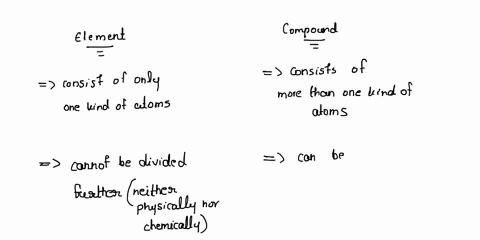 Element
=> consist of only
one kind of atoms
=> cannot be divided
further (neither
physically nor
chemically)
Compound
=> consists of
more than one kind of
atoms
=> can be